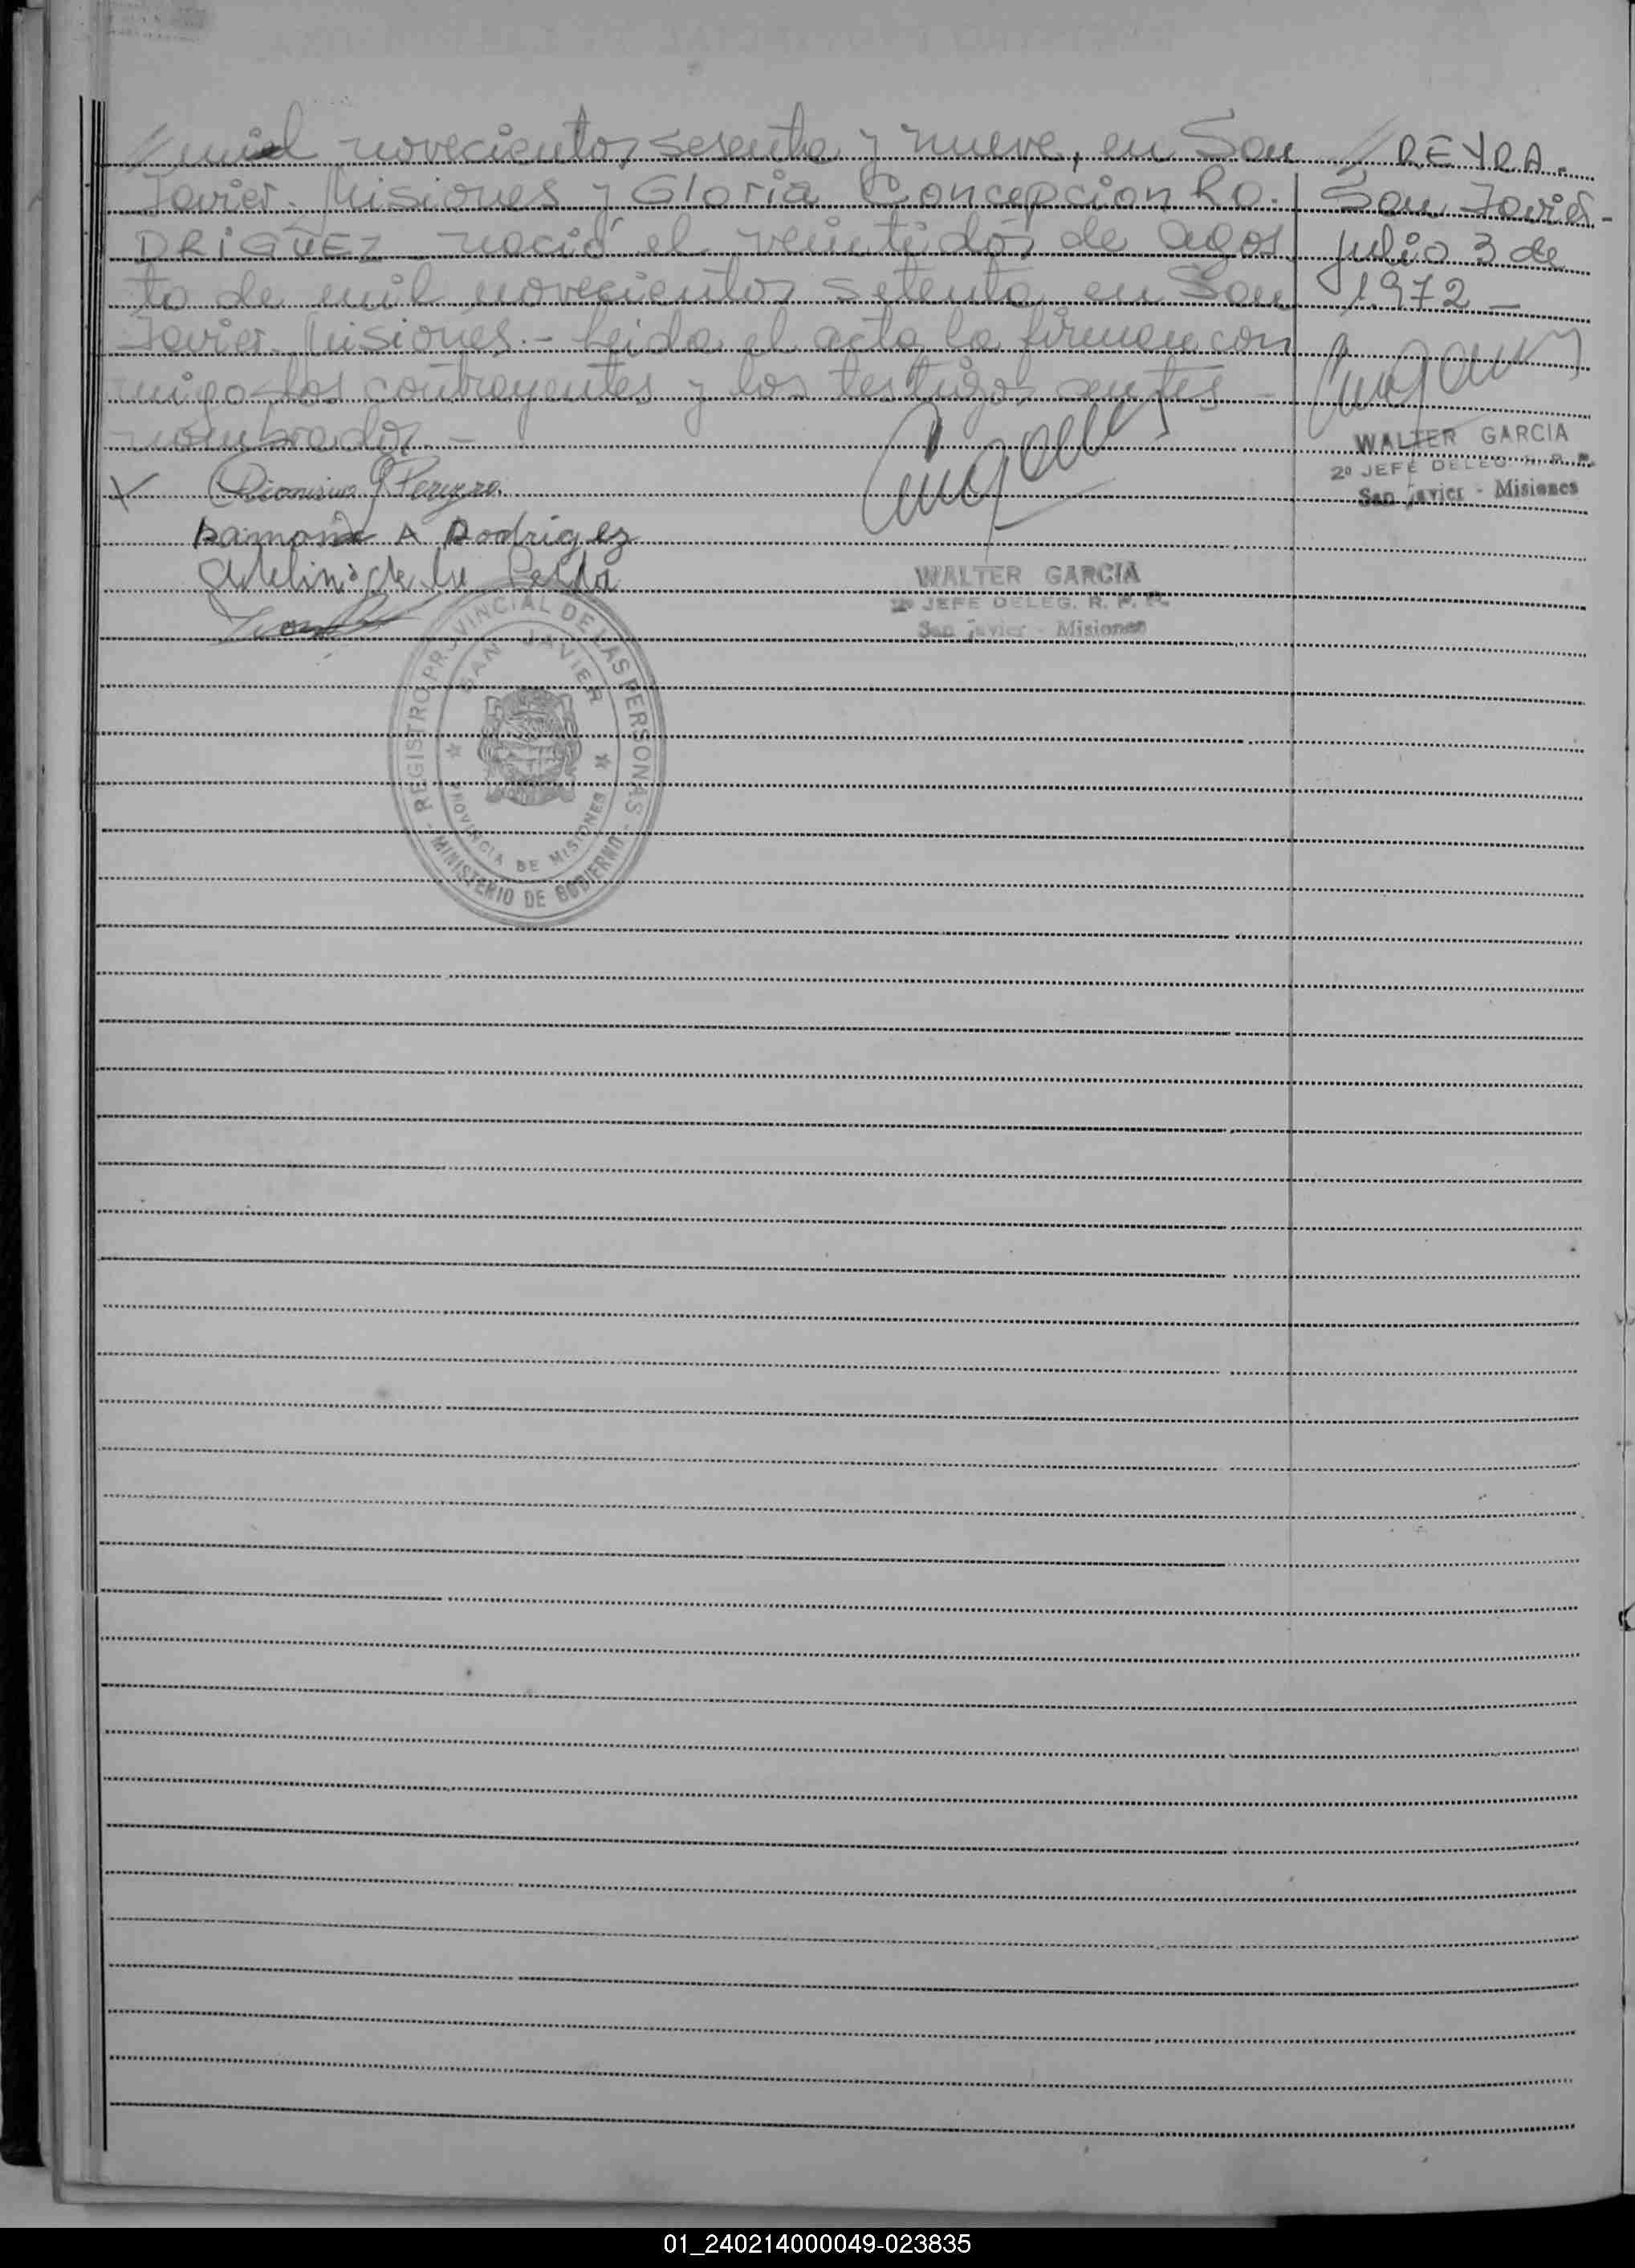 // mil novecientos sesenta y nueve, en San
Javier. Misiones y Gloria Concepcion RO.
DRIGUEZ nació el veintidós de agos
to de mil novecientos setenta en San
Javier. Misiones.- Leida el acta la firman con
migo los contrayentes y los testigos antes -
nombrados. -
// REYRA.
San Javier -
Julio 3 de
1972 -
WALTER GARCIA
2º JEFE DELEG. R. P. P.
San Javier - Misiones
X Dionisio Pereyra
Ramona A Rodrigez
WALTER GARCIA
2º JEFE DELEG. R. P. P.
San Javier - Misiones
REGISTRO PROVINCIAL DE LAS PERSONAS
SAN JAVIER
PROVINCIA DE MISIONES
- MINISTERIO DE GOBIERNO -
01_240214000049-023835